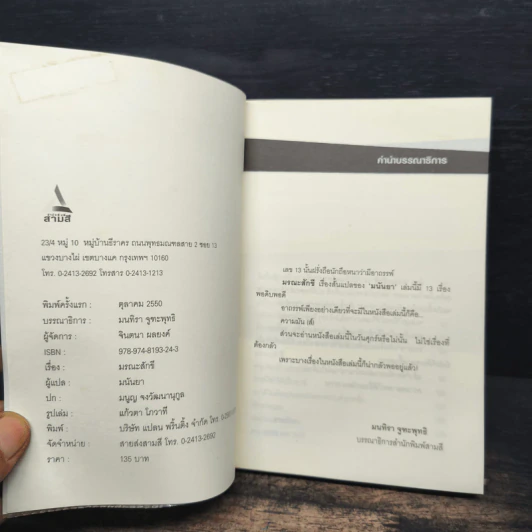 สามสี
23/4 หมู่ 10 หมู่บ้านธีราคร ถนนพุทธมณฑลสาย 2 ซอย 13
แขวงบางไผ่ เขตบางแค กรุงเทพฯ 10160
โทร. 0-2413-2692 โทรสาร 0-2413-1213
พิมพ์ครั้งแรก : ตุลาคม 2550
บรรณาธิการ : มนทิรา จูฑะพุทธิ
ผู้จัดการ : จินตนา ผลยงค์
ISBN : 978-974-8193-24-3
เรื่อง : มรณะสักขี
ผู้แปล : มนันยา
ปก : มนูญ จงวัฒนานุกูล
รูปเล่ม : แก้วตา โภวาที
พิมพ์ : บริษัท แปลน พริ้นติ้ง จำกัด โทร.
จัดจำหน่าย : สายส่งสามสี โทร. 0-2413-2690
ราคา : 135 บาท
คำนำบรรณาธิการ
เลข 13 นั้นฝรั่งถือนักถือหนาว่ามีอาถรรพ์
มรณะสักขี เรื่องสั้นแปลของ 'มนันยา' เล่มนี้มี 13 เรื่อง
พอดิบพอดี
อาถรรพ์เพียงอย่างเดียวที่จะมีในหนังสือเล่มนี้ก็คือ..
ความมัน (ส์)
ส่วนจะอ่านหนังสือเล่มนี้ในวันศุกร์หรือไม่นั้น ไม่ใช่เรื่องที่
ต้องกลัว
เพราะบางเรื่องในหนังสือเล่มนี้ก็น่ากลัวพออยู่แล้ว!
มนทิรา จูฑะพุทธิ
บรรณาธิการสำนักพิมพ์สามสี